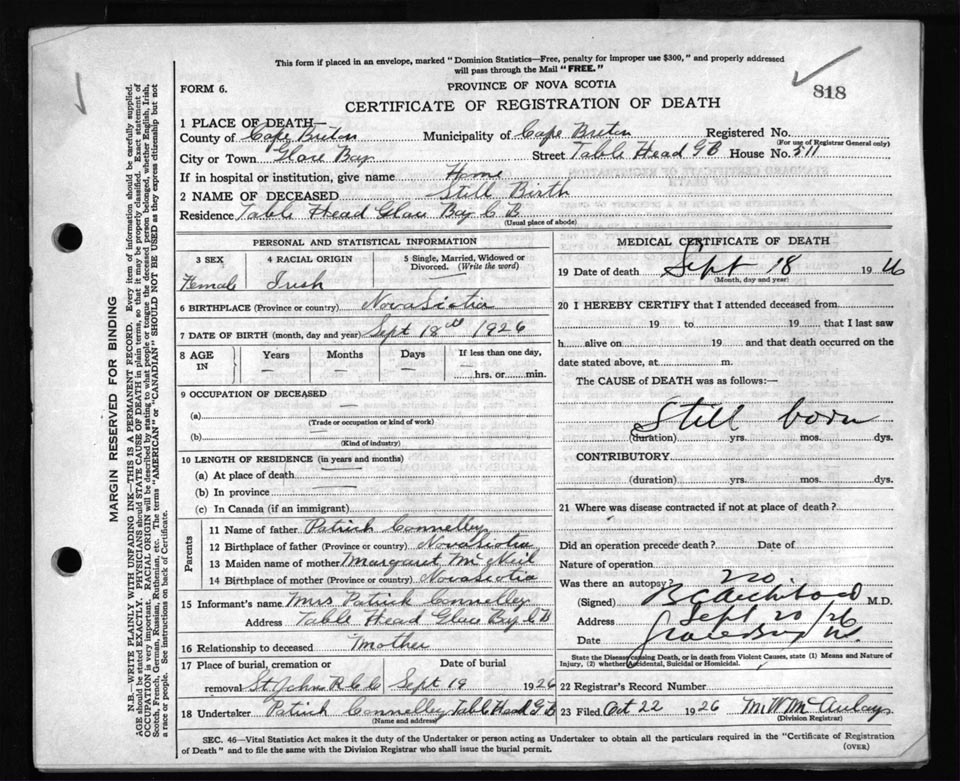 This form if placed in an envelope, marked "Dominion Statistics—Free, penalty for improper use $300," and properly addressed
will pass through the Mail "FREE."
PROVINCE OF NOVA SCOTIA
818
FORM 6.
CERTIFICATE OF REGISTRATION OF DEATH
1 PLACE OF DEATH—
County of Cape Breton Municipality of Cape Breton Registered No.
(For use of Registrar General only)
City or Town Glace Bay Street Table Head G B House No. 511
If in hospital or institution, give name Home
2 NAME OF DECEASED Still Birth
Residence Table Head Glace Bay C B
(Usual place of abode)
PERSONAL AND STATISTICAL INFORMATION
3 SEX 4 RACIAL ORIGIN 5 Single, Married, Widowed or
Divorced. (Write the word)
Female Irish
6 BIRTHPLACE (Province or country) Nova Scotia
7 DATE OF BIRTH (month, day and year) Sept 18th 1926
8 AGE IN Years Months Days If less than one day,
— — — hrs. or min.
9 OCCUPATION OF DECEASED —
(a) —
(Trade or occupation or kind of work)
(b)
(Kind of industry)
10 LENGTH OF RESIDENCE (in years and months)
(a) At place of death
(b) In province
(c) In Canada (if an immigrant)
Parents
11 Name of father Patrick Connelley
12 Birthplace of father (Province or country) Nova Scotia
13 Maiden name of mother Margaret McNeil
14 Birthplace of mother (Province or country) Nova Scotia
15 Informant's name Mrs Patrick Connelley
Address Table Head Glace Bay C B
16 Relationship to deceased Mother
17 Place of burial, cremation or Date of burial
removal St. Johns R.C.C Sept 19 1926
18 Undertaker Patrick Connelley Table Head G B
(Name and address)
MEDICAL CERTIFICATE OF DEATH
19 Date of death Sept 18 1926
(Month, day and year)
20 I HEREBY CERTIFY that I attended deceased from
19 to 19 that I last saw
h alive on 19 and that death occurred on the
date stated above, at m.
The CAUSE of DEATH was as follows:—
Still born
(duration) yrs. mos. dys.
CONTRIBUTORY
(duration) yrs. mos. dys.
21 Where was disease contracted if not at place of death?
Did an operation precede death? Date of
Nature of operation
Was there an autopsy? no
(Signed) M.D.
Address Sept 20/26
Date Glace Bay
State the Disease causing Death, or in death from Violent Causes, state (1) Means and Nature of
Injury, (2) whether Accidental, Suicidal or Homicidal.
22 Registrar's Record Number
23 Filed Oct 22 1926 McAulay
(Division Registrar)
SEC. 46—Vital Statistics Act makes it the duty of the Undertaker or person acting as Undertaker to obtain all the particulars required in the "Certificate of Registration
of Death" and to file the same with the Division Registrar who shall issue the burial permit.
(OVER)
MARGIN RESERVED FOR BINDING
N.B.—WRITE PLAINLY WITH UNFADING INK—THIS IS A PERMANENT RECORD. Every item of information should be carefully supplied.
AGE should be stated EXACTLY. PHYSICIANS should STATE CAUSE OF DEATH in plain terms, so that it may be properly classified. Exact statement of
OCCUPATION is very important. RACIAL ORIGIN will be described by stating to what people or tongue the deceased person belonged, whether English, Irish,
Scotch, French, German, Russian, Ruthenian, etc. The terms "AMERICAN" or "CANADIAN" SHOULD NOT BE USED as they express citizenship but not
a race or people. See instructions on back of Certificate.